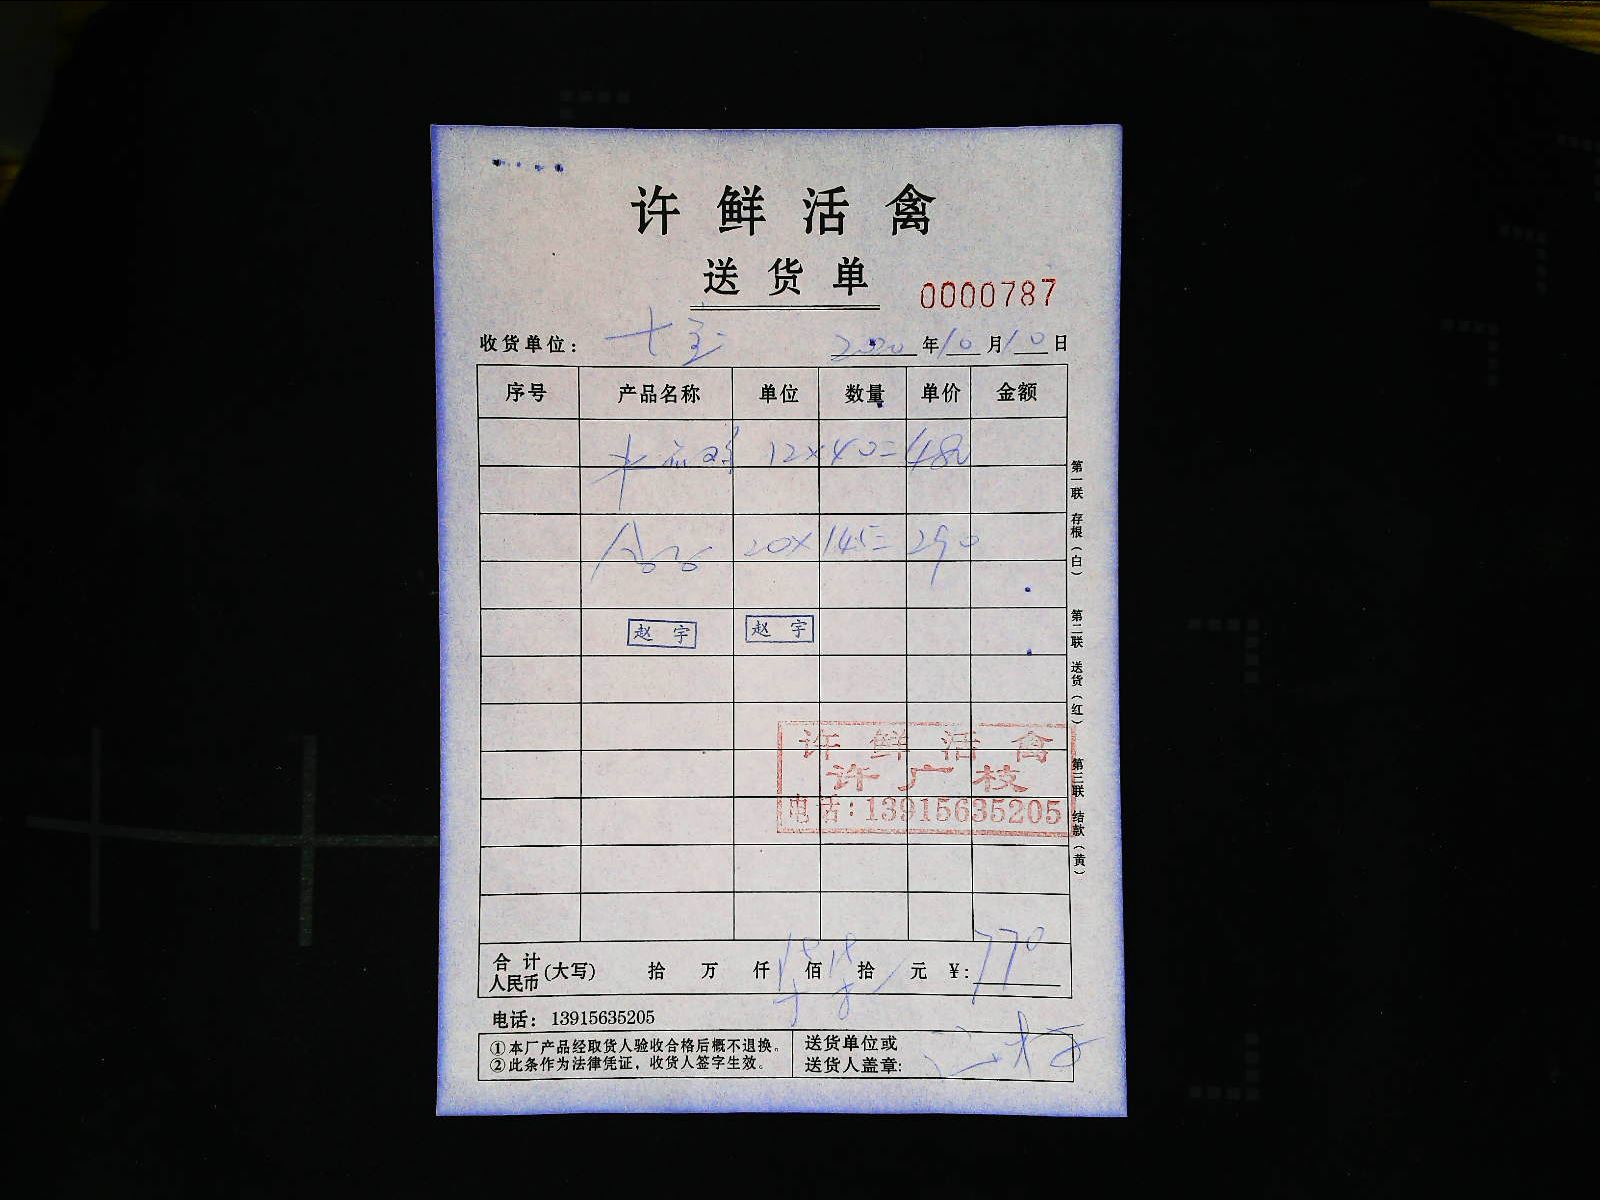 许鲜活禽
送货单
0000787
收货单位： 2020年10月10日
序号 产品名称 单位 数量 单价 金额
12×40=480
20×145=290
赵宇 赵宇
许鲜活禽
许广枝
电话：13915635205
第一联 存根（白） 第二联 送货（红） 第三联 结款（黄）
合计人民币(大写) 拾 万 仟 柒佰柒拾 元 ¥：770
电话：13915635205
①本厂产品经取货人验收合格后概不退换。
②此条作为法律凭证，收货人签字生效。
送货单位或
送货人盖章：